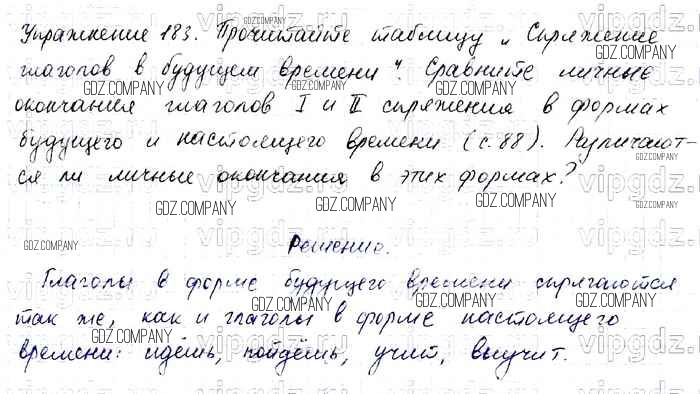 Упражнение 183. Прочитайте таблицу „Спряжение
глаголов в будущем времени". Сравните личные
окончания глаголов I и II спряжения в формах
будущего и настоящего времени (с. 88). Различают-
ся ли личные окончания в этих формах?
Решение.
Глаголы в форме будущего времени спрягаются
так же, как и глаголы в форме настоящего
времени: идёшь, пойдёшь, учит, выучит.